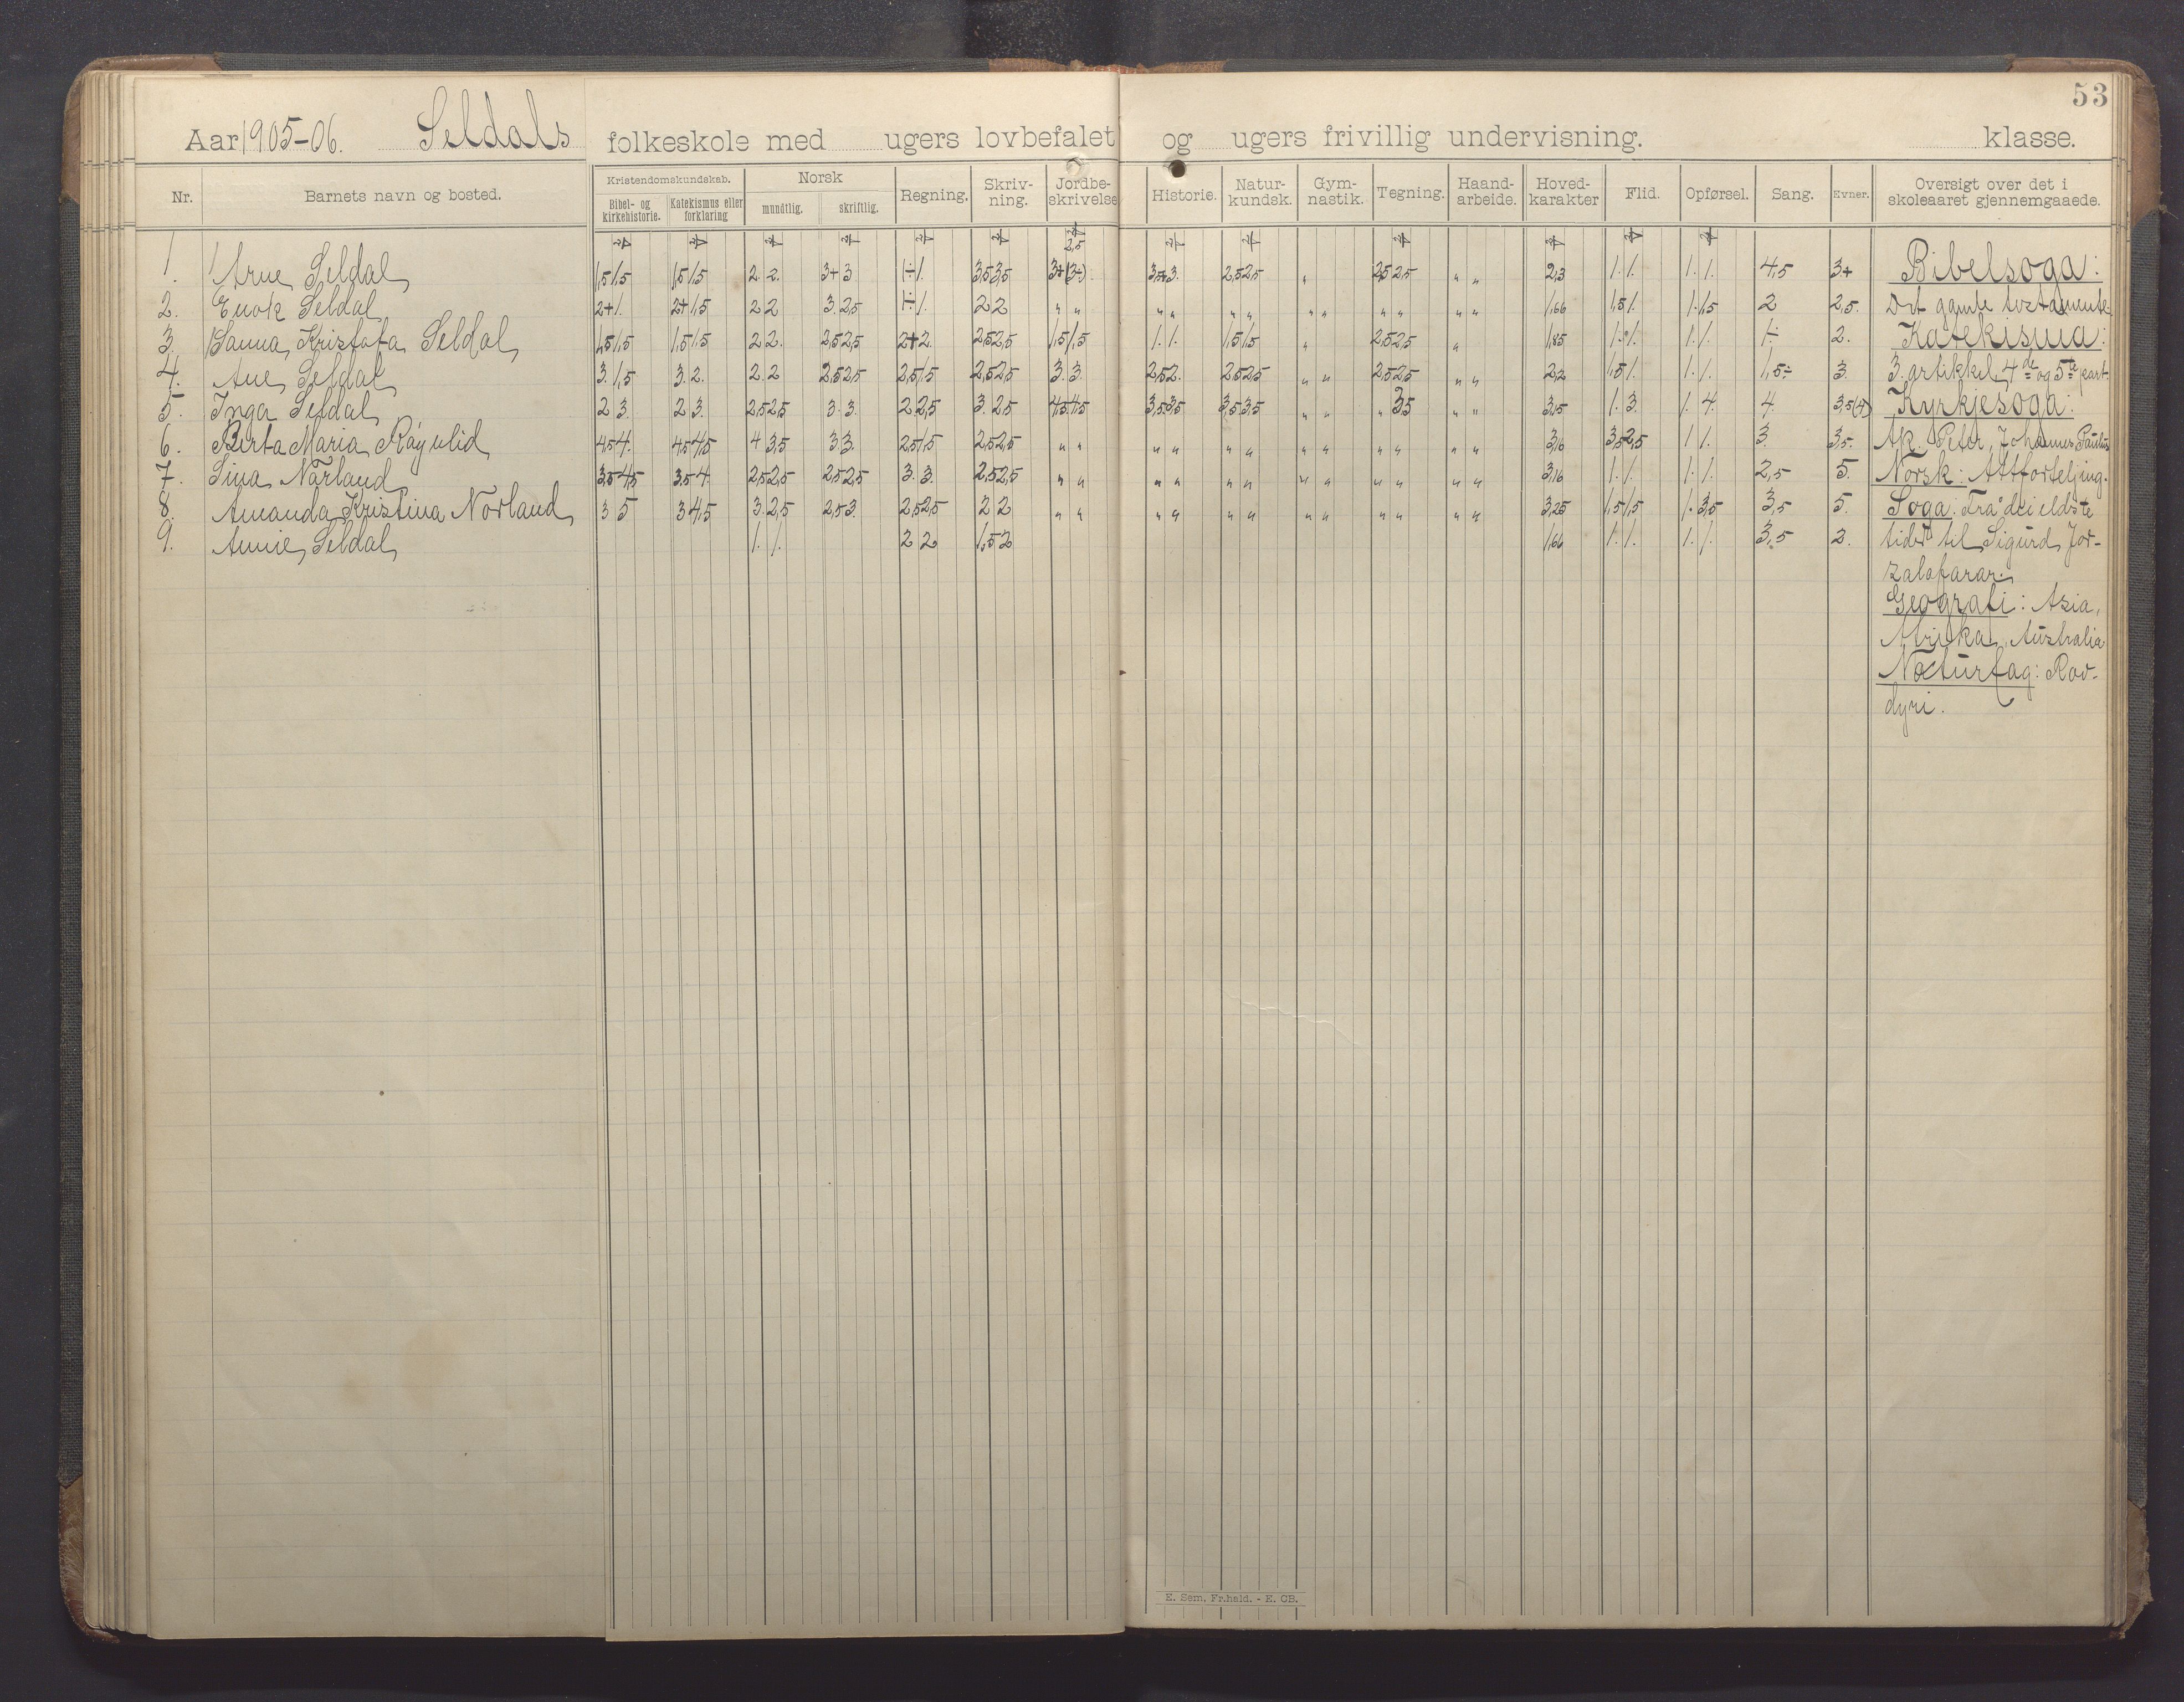 53
Aar 1905-06. Seldals folkeskole med ugers lovbefalet og ugers frivillig undervisning. klasse.
Nr. Barnets navn og bosted. Kristendomskundskab. Norsk Regning. Skriv-ning. Jordbe-skrivelse Historie. Natur-kundsk. Gym-nastik. Tegning. Haand-arbeide. Hoved-karakter Flid. Opførsel. Sang. Evner. Oversigt over det i skoleaaret gjennemgaaede.
Bibel- og kirkehistorie. Katekismus eller forklaring mundtlig. skriftlig.
1. Arne Seldal 1,5 1,5 1,5 1,5 2. 2. 3+ 3 1÷ 1. 3,5 3,5 2,5 3+ (3+) 3,5+ 3. 2,5 2,5 „ 2,5 2,5 „ „ 2,3 1. 1. 1. 1. 4,5 3+ Bibelsoga:
2. Enok Seldal 2+ 1. 2+ 1,5 2 2 3. 2,5 1÷ 1. 2 2 „ „ „ „ „ „ „ „ „ „ „ „ 1,66 1,5 1. 1. 1,5 2 2,5. Det gamle testamente.
3. Sanna Kristofa Seldal 1,5 1,5 1,5 1,5 2 2. 2,5 2,5 2+ 2. 2,5 2,5 1,5 1,5 1. 1. 1,5 1,5 „ 2,5 2,5 „ 1,85 1. 1. 1. 1. 1÷ 2. Katekisma:
4. Ane Seldal 3. 1,5 3. 2. 2. 2 2,5 2,5 2,5 1,5 2,5 2,5 3. 3. 2,5 2. 2,5 2,5 „ „ 2,5 2,5 „ „ 2,2 1,5 1. 1. 1. 1,5÷ 3. 3. artikkel, 4de og 5te part.
5. Inga Seldal 2 3. 2 3. 2,5 2,5 3. 3. 2 2,5 3. 2,5 4,5 4,5 3,5 3,5 3,5 3,5 „ „ „ 3,5 „ „ 3,15 1. 3. 1. 4. 4. 3,5(4) Kyrkjesoga:
6. Berta Maria 4,5 4. 4,5 4,5 4 3,5 3 3. 2,5 1,5 2,5 2,5 „ „ „ „ „ „ „ „ „ „ „ „ 3,16 3,5 2,5 1 1. 3. 3,5. Peter, Johannes, Paulus
7. Lina Norland 3,5 4,5 3,5 4. 2,5 2,5 2,5 2,5 3. 3. 2,5 2,5 „ „ „ „ „ „ „ „ „ „ „ „ 3,16 1. 1. 1. 1. 2,5 5. Norsk: Attforteljing.
8. Amanda Kristina Norland 3 5 3 4,5 3. 2,5 2,5 3. 2,5 2,5 2 2 „ „ „ „ „ „ „ „ „ „ „ „ 3,25 1,5 1,5 1. 3,5 3,5 5. Soga: Frå dei eldste
9. Annie Seldal 1. 1. 2 2 1,5 2 1,66 1. 1. 1. 1. 3,5 2. tider til Sigurd Jor-
zalafarar.
Geografi: Asia,
Afrika, Australia
Naturfag: Rov-
dyri.
E. Sem, Fr.hald. - E. CB.